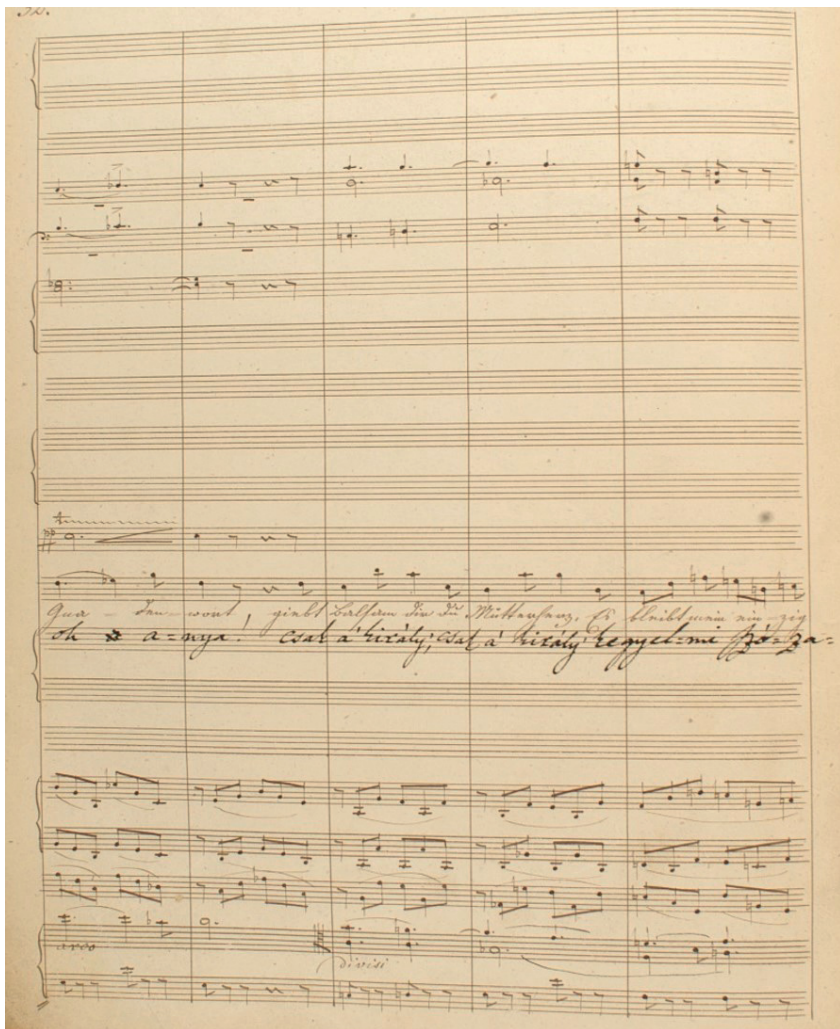 32.
Gna - den - wort giebt Balsam dir du Mutterherz, Es bleibt mein ein - zig
oh a=nya! csak a' király, csak a' király' kegyel=mi szó-za=
arco
divisi